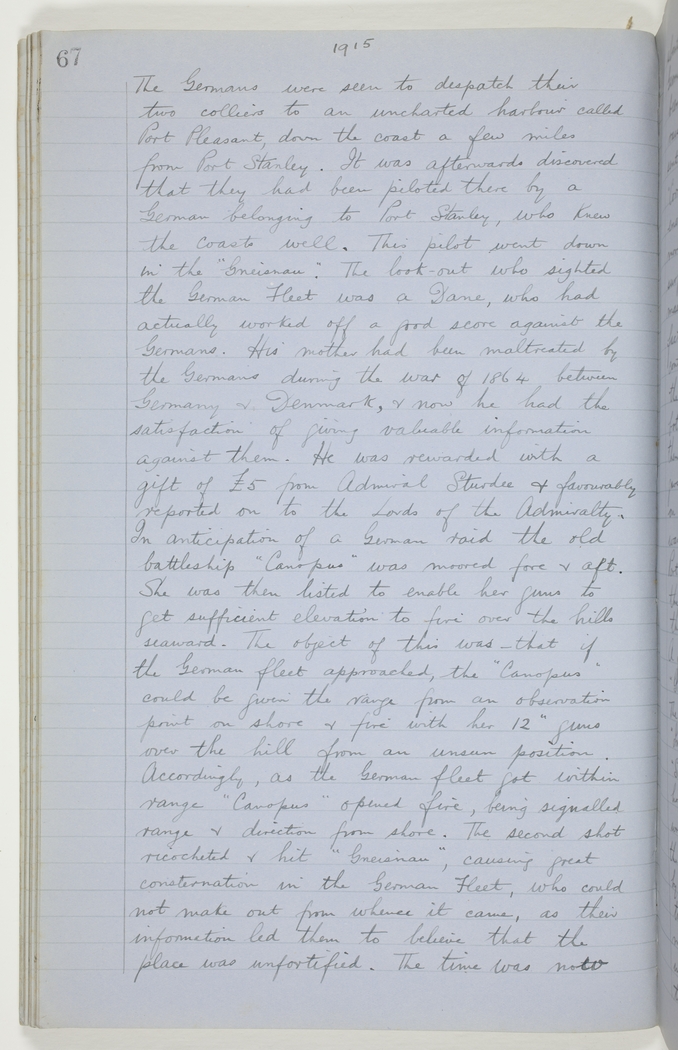 67
1915
The Germans were seen to despatch their
two colliers to an uncharted harbour called
Port Pleasant, down the coast a few miles
from Port Stanley. It was afterwards discovered
that they had been piloted there by a
German belonging to Port Stanley, who knew
the coasts well. This pilot went down
in the "Gneisnau". The look-out who sighted
the German Fleet was a Dane, who had
actually worked off a good score against the
Germans. His mother had been maltreated by
the Germans during the war of 1864 between
Germany & Denmark, & now he had the
satisfaction of giving valuable information
against them. He was rewarded with a
gift of £5 from Admiral Sturdee & favourably
reported on to the Lords of the Admiralty.
In anticipation of a German raid the old
battleship "Canopus" was moored fore & aft.
She was then listed to enable her guns to
get sufficient elevation to fire over the hills
seaward. The object of this was - that if
the German fleet approached, the "Canopus"
could be given the range from an observation
point on shore & fire with her 12" guns
over the hill from an unseen position.
Accordingly, as the German fleet got within
range "Canopus" opened fire, being signalled
range & direction from shore. The second shot
ricocheted & hit "Gneisnau", causing great
consternation in the German Fleet, who could
not make out from whence it came, as their
information led them to believe that the
place was unfortified. The time was now